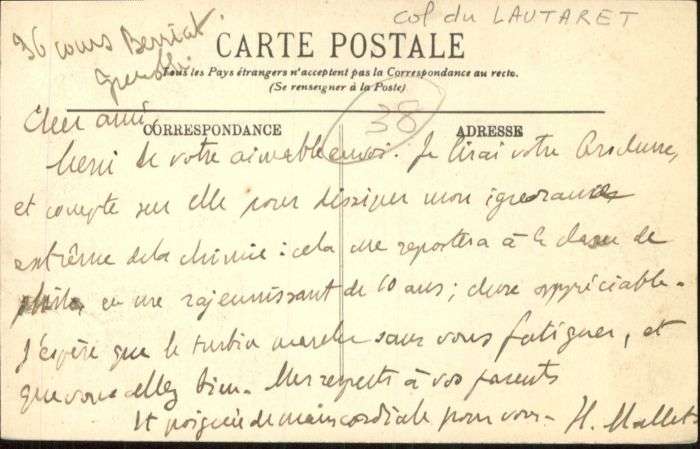 36 cours Berriat
Grenoble
col du LAUTARET
CARTE POSTALE
Tous les Pays étrangers n'acceptent pas la Correspondance au recto.
(Se renseigner à la Poste)
38
CORRESPONDANCE
ADRESSE
Cher ami,
Merci de votre aimable envoi. Je lirai votre
et compte sur elle pour dissiper mon ignorance
extrême de la chimie : cela me reportera à la classe de
philo, en me rajeunissant de 10 ans ; chose appréciable.
J'espère que le turbin marche sans vous fatiguer, et
que vous allez bien. Mes respects à vos parents
Et poignée de main cordiale pour vous. H. Mallet